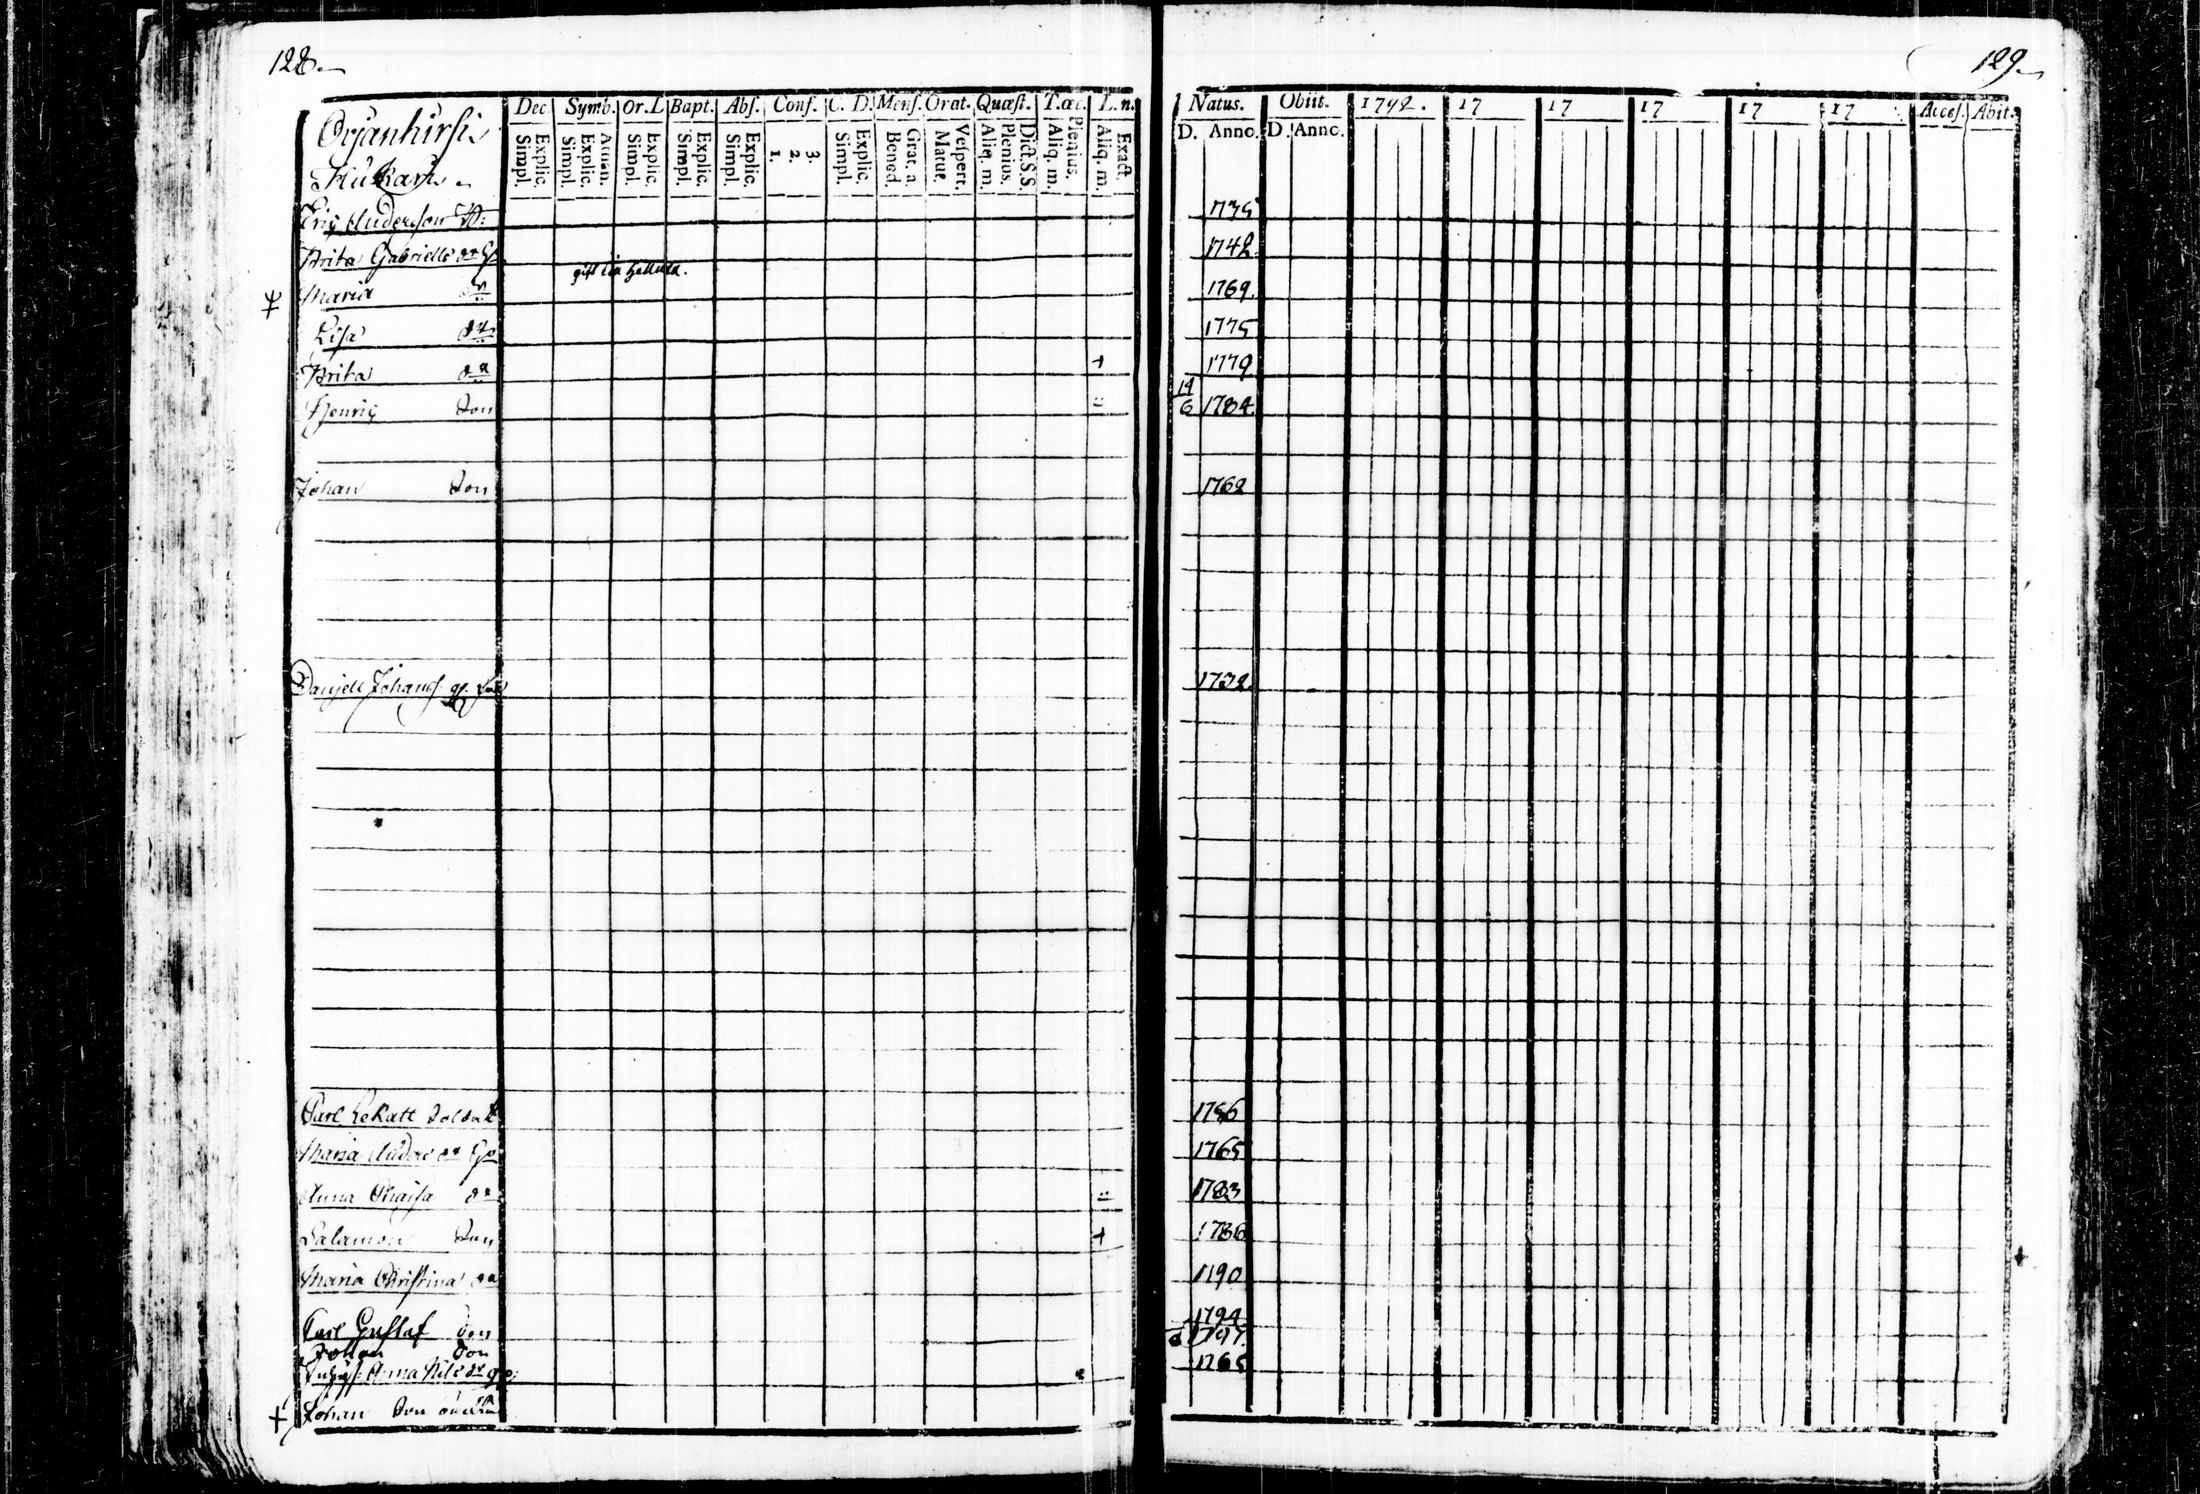 128.
129.
Dec. Symb. Or. L Bapt. Abs. Conf. C. D. Mens. Orat. Quæst. T. œc. L. n.
Simpl. Explic. Simpl. Explic. Athan. Simpl. Explic. Simpl. Explic. Simpl. Explic. 1. 2. 3. Simpl. Explic. Bened. Grat. a. Matut. Vespert. Aliq. m. Plenius. Dict. S.S. Aliq. m. Plenius. Aliq. m. Exact.
Natus. Obiit. 1792. 17 17 17 17 17 Acces. Abit.
D. Anno. D. Anno.
Eric Anderson 1735
Brita Gabriells dr 1742
gift
Maria dr 1769.
Lisa dr 1775
Brita dr + 1779
Henric Son 14/6 1784.
Johan Son 1762
Danjell Johans 1732.
Carl Lekatt Soldat 1756
Maria Anders dr 1765
Anna Caisa dr 1783
Salamon Son + 1786
Maria Christina dr 1790
Carl Gustaf Son 1794
Johan Son 1797.
Anna Nils dr 1765
Johan Son